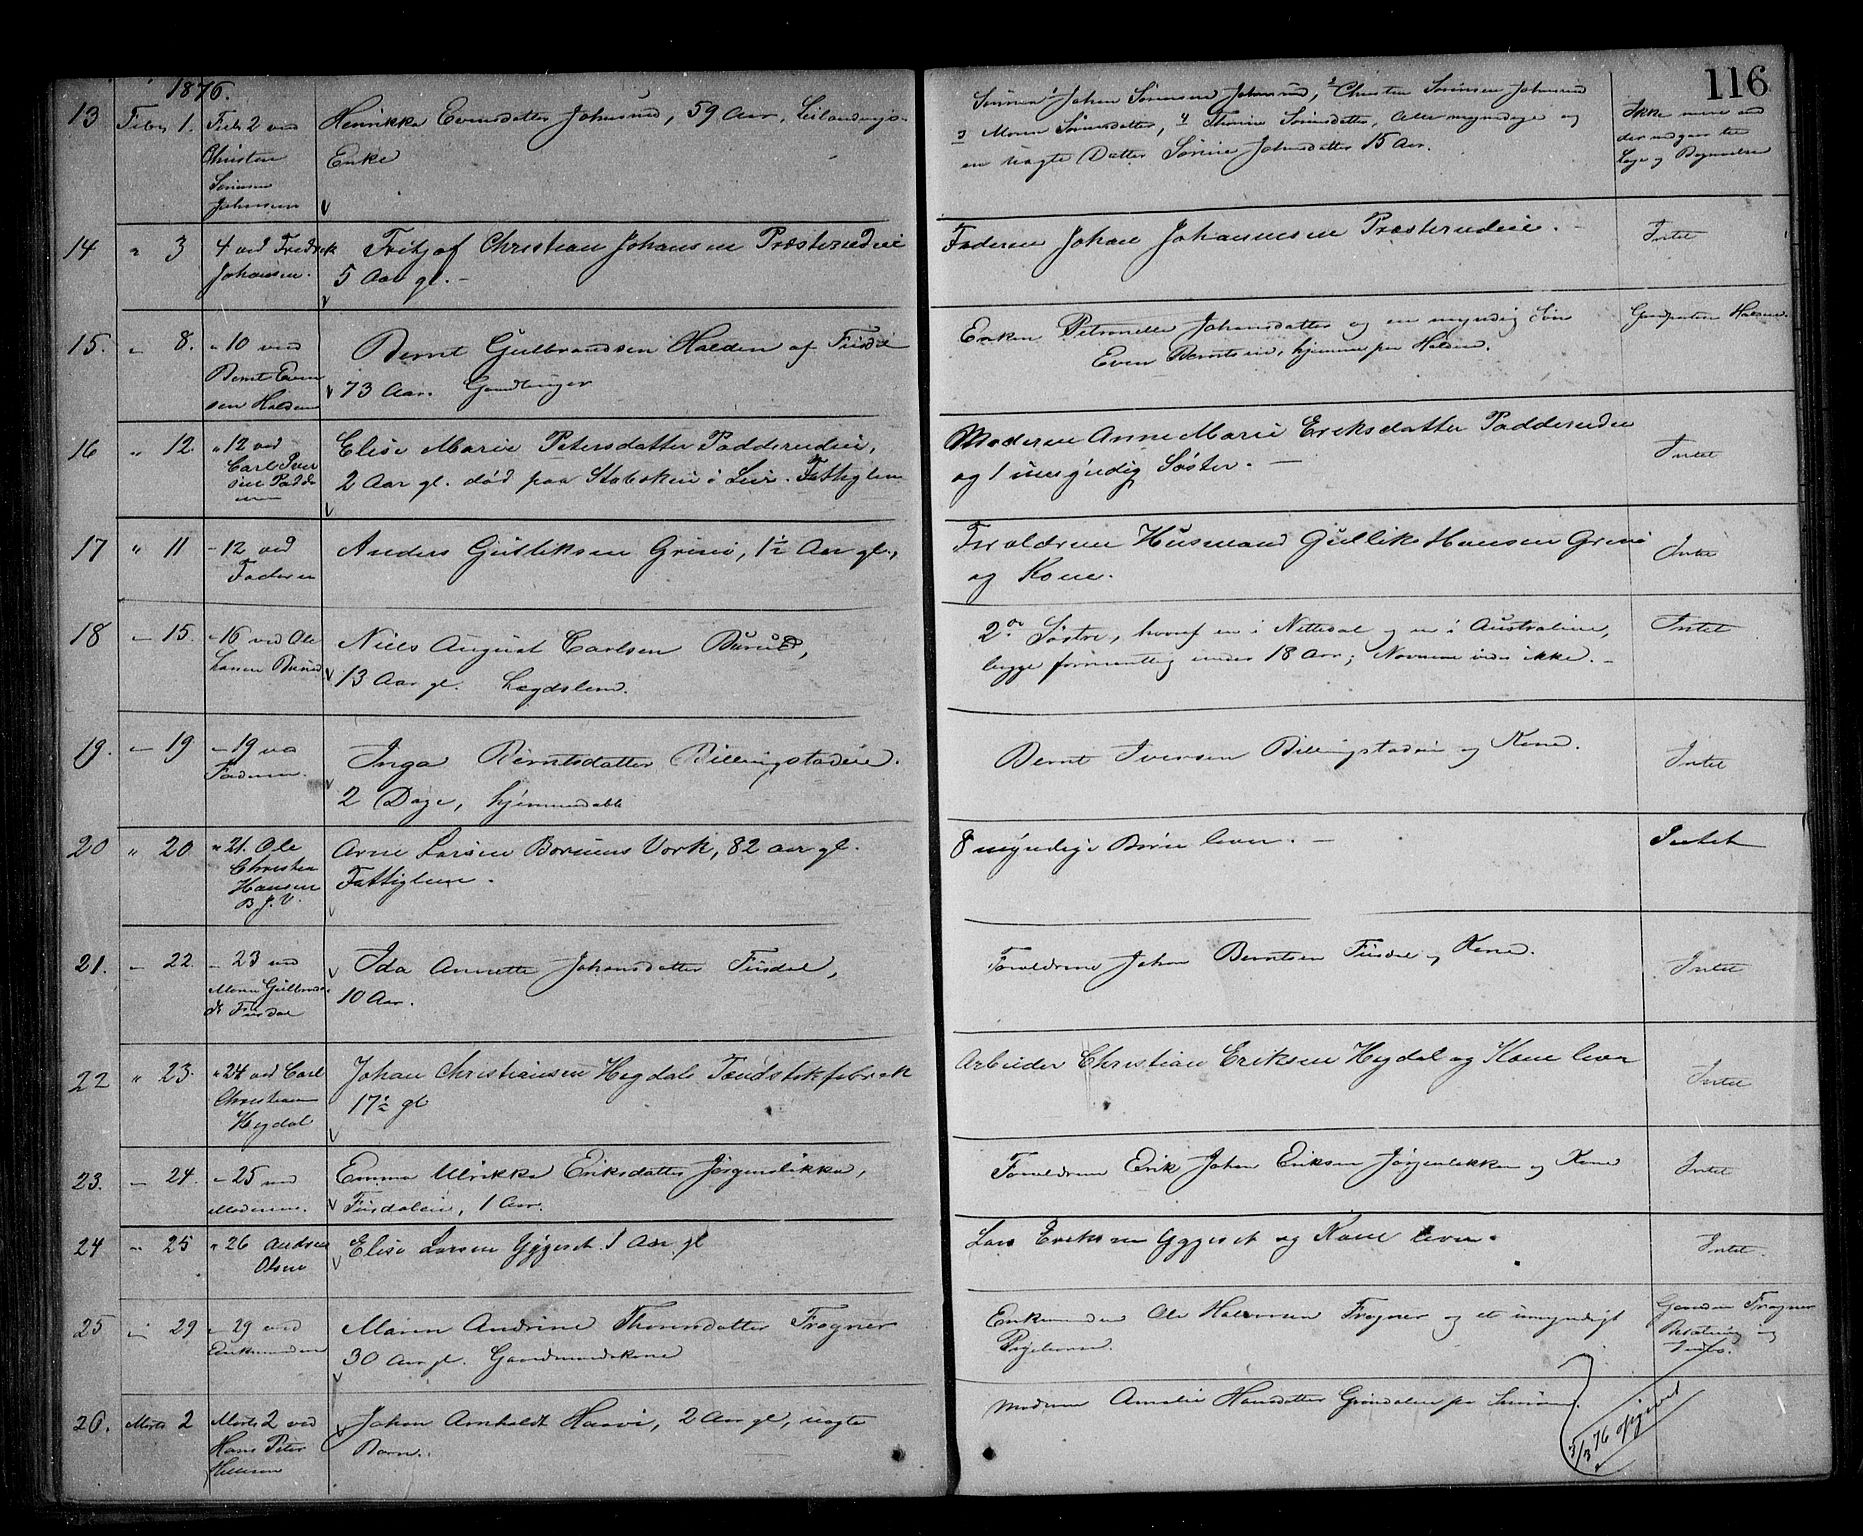 116
1876.
13 Febr 1. Febr 2 ved Christen Johnsen Henrikke Evensdatter Johnsrud, 59 Aar,
Enke
Sønnen 1 Johan Sørensen Johnsrud, 2 Christen Sørensen Johnsrud
3 Maren Sørensdatter, 4 Sørensdatter, Alle myndige og
en uægte Datter Sørine Johnsdatter 15 Aar.
Ikke mere end
der udgaar til
Læge og Begravelse
14 " 3 4 ved Fredrik Johansen. Fritjof Christian Johansen Præsterudeie
5 Aar gl. -
Faderen Johan Johannesen Præsterudeie. -
Intet
15. " 8. " 10 ved Bernt Evensen Halden Bernt Gulbrandsen Halden af Fusdal
73 Aar. Gaardbruger
Enken Petronelle Johansdatter og en myndig Søn
Even Berntsen, hjemme paa Halden.
Gaardparten Halden.
16 " 12. " 12 ved Carl Iversen Elise Marie Petersdatter Padderudeie,
2 Aar gl. død paa Stabæksen i Lier. Fattiglem
Moderen Anne Marie Eriksdatter Padderudeie
og 1 umyndig Søster. -
Intet
17 " 11 - 12 ved Faderen Anders Gulliksen Grini, 1½ Aar gl.,
Forældrene Husmand Gullik Hansen Grini
og Kone.
Intet
18 - 15. - 16 ved Ole Larsen Burud Niels August Carlsen Burud,
13 Aar gl. Lægdslem.
2de Søstre, hvoraf en i Nittedal og en i Australien,
begge formentlig under 18 Aar; Navnene vides ikke. -
Intet
19. - 19 - 19 ved Faderen. Inga Berntsdatter Billingstadeie.
2 Dage, hjemmedøbt
Bernt Iversen Billingstadeie og Kone.
Intet
20 " 20 " 21. Ole Christian Hansen B. J. V. Arne Larsen Bærums Verk, 82 aar gl.
Fattiglem.
8 myndige Børn lever. -
Intet
21. - 22. - 23 ved Maren Gulbrandsdt Fusdal Ida Annette Johansdatter Fusdal,
10 Aar.
Forældrene Johan Berntsen Fusdal og Kone.
Intet
22 " 23. " 24 ved Carl Christiansen Hegdal Johan Christiansen Hegdal Tændstikfabrik
17½ gl
Arbeider Christian Eriksen Hegdal og Kone lever
Intet
23. - 24. - 25 ved Moderen. Emma Ulrikke Eriksdatter Jørgensløkken,
Fusdaleie, 1 Aar.
Forældrene Erik Johan Eriksen Jørgensløkken og Kone
Intet
24 " 25 " 26 Andreas Olsen Elise Larsen Gjgjeset. 1 Aar gl
Lars Eriksen Gjgjeset og Kone lever.
Intet.
25 " 29 - 29 ved Enkemanden Maren Andrine Thorsdatter Frogner
30 Aar gl. Gaardmandskone
Enkemanden Ole Halvorsen Frogner og et umyndigt
Pigebarn.
Gaarden Frogner
Besætning og
Indbo.
26. Marts 2 Marts 2 ved Hans Peter Johan Arnholdt Haavi, 2 Aar gl, uægte
Barn.
Moderen Amalie Hansdatter Grindalen
3/3 76 opgivet